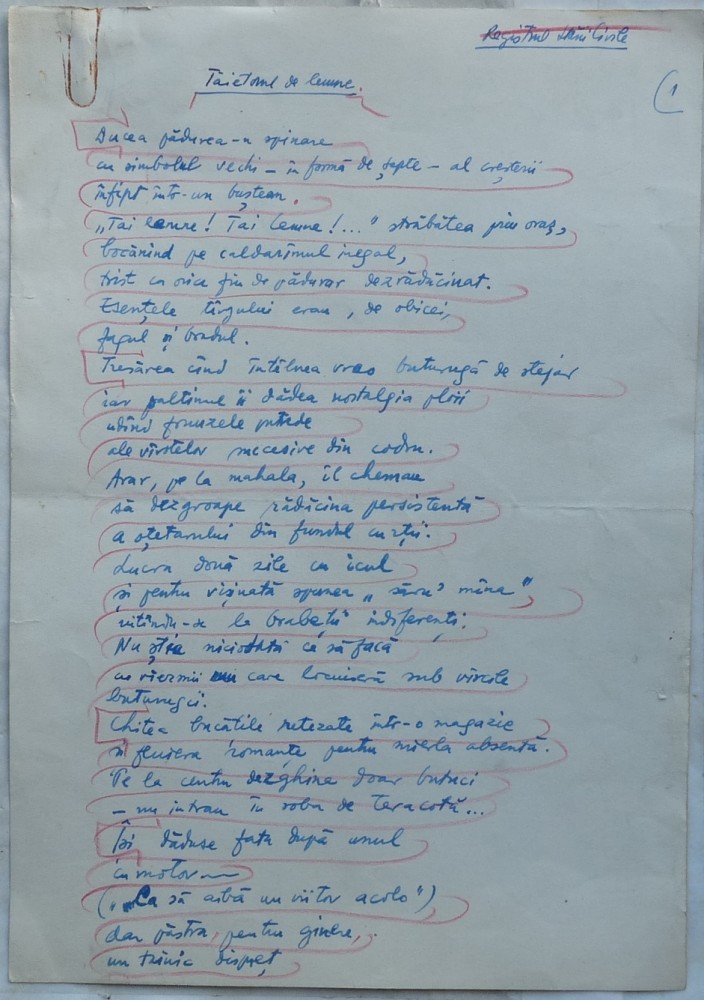 Registrul stării civile
1
Tăietorul de lemne.
Ducea pădurea-n spinare
cu simbolul vechi – în formă de șapte – al creșterii
înfipt într-un buștean.
„Tai lemne! Tai lemne!..." străbătea prin oraș,
bocănind pe caldarîmul inegal,
trist ca orice fiu de pădurar dezrădăcinat.
Esențele tîrgului erau, de obicei,
fagul și bradul.
Tresărea cînd întâlnea vreo buturugă de stejar
iar paltinul îi dădea nostalgia ploii
udînd frunzele putrede
ale vîrstelor succesive din codru.
Arar, pe la mahala, îl chemau
să dezgroape rădăcina persistentă
a oțetarului din fundul curții.
Lucra două zile cu icul
și pentru vișinată spunea „săru' mîna",
uitîndu-se la brabeții indiferenți.
Nu știa niciodată ce să facă
cu viermii care locuiseră sub vîrstele
buturugii.
Chitea bucățile retezate într-o magazie
și fluiera romanțe pentru mierla absentă.
Pe la centru dezghina doar butuci
– nu intrau în soba de teracotă...
Își dăduse fata după unul
cu motor
(„Ca să aibă un viitor acolo"),
dar păstra, pentru ginere,
un trainic dispreț